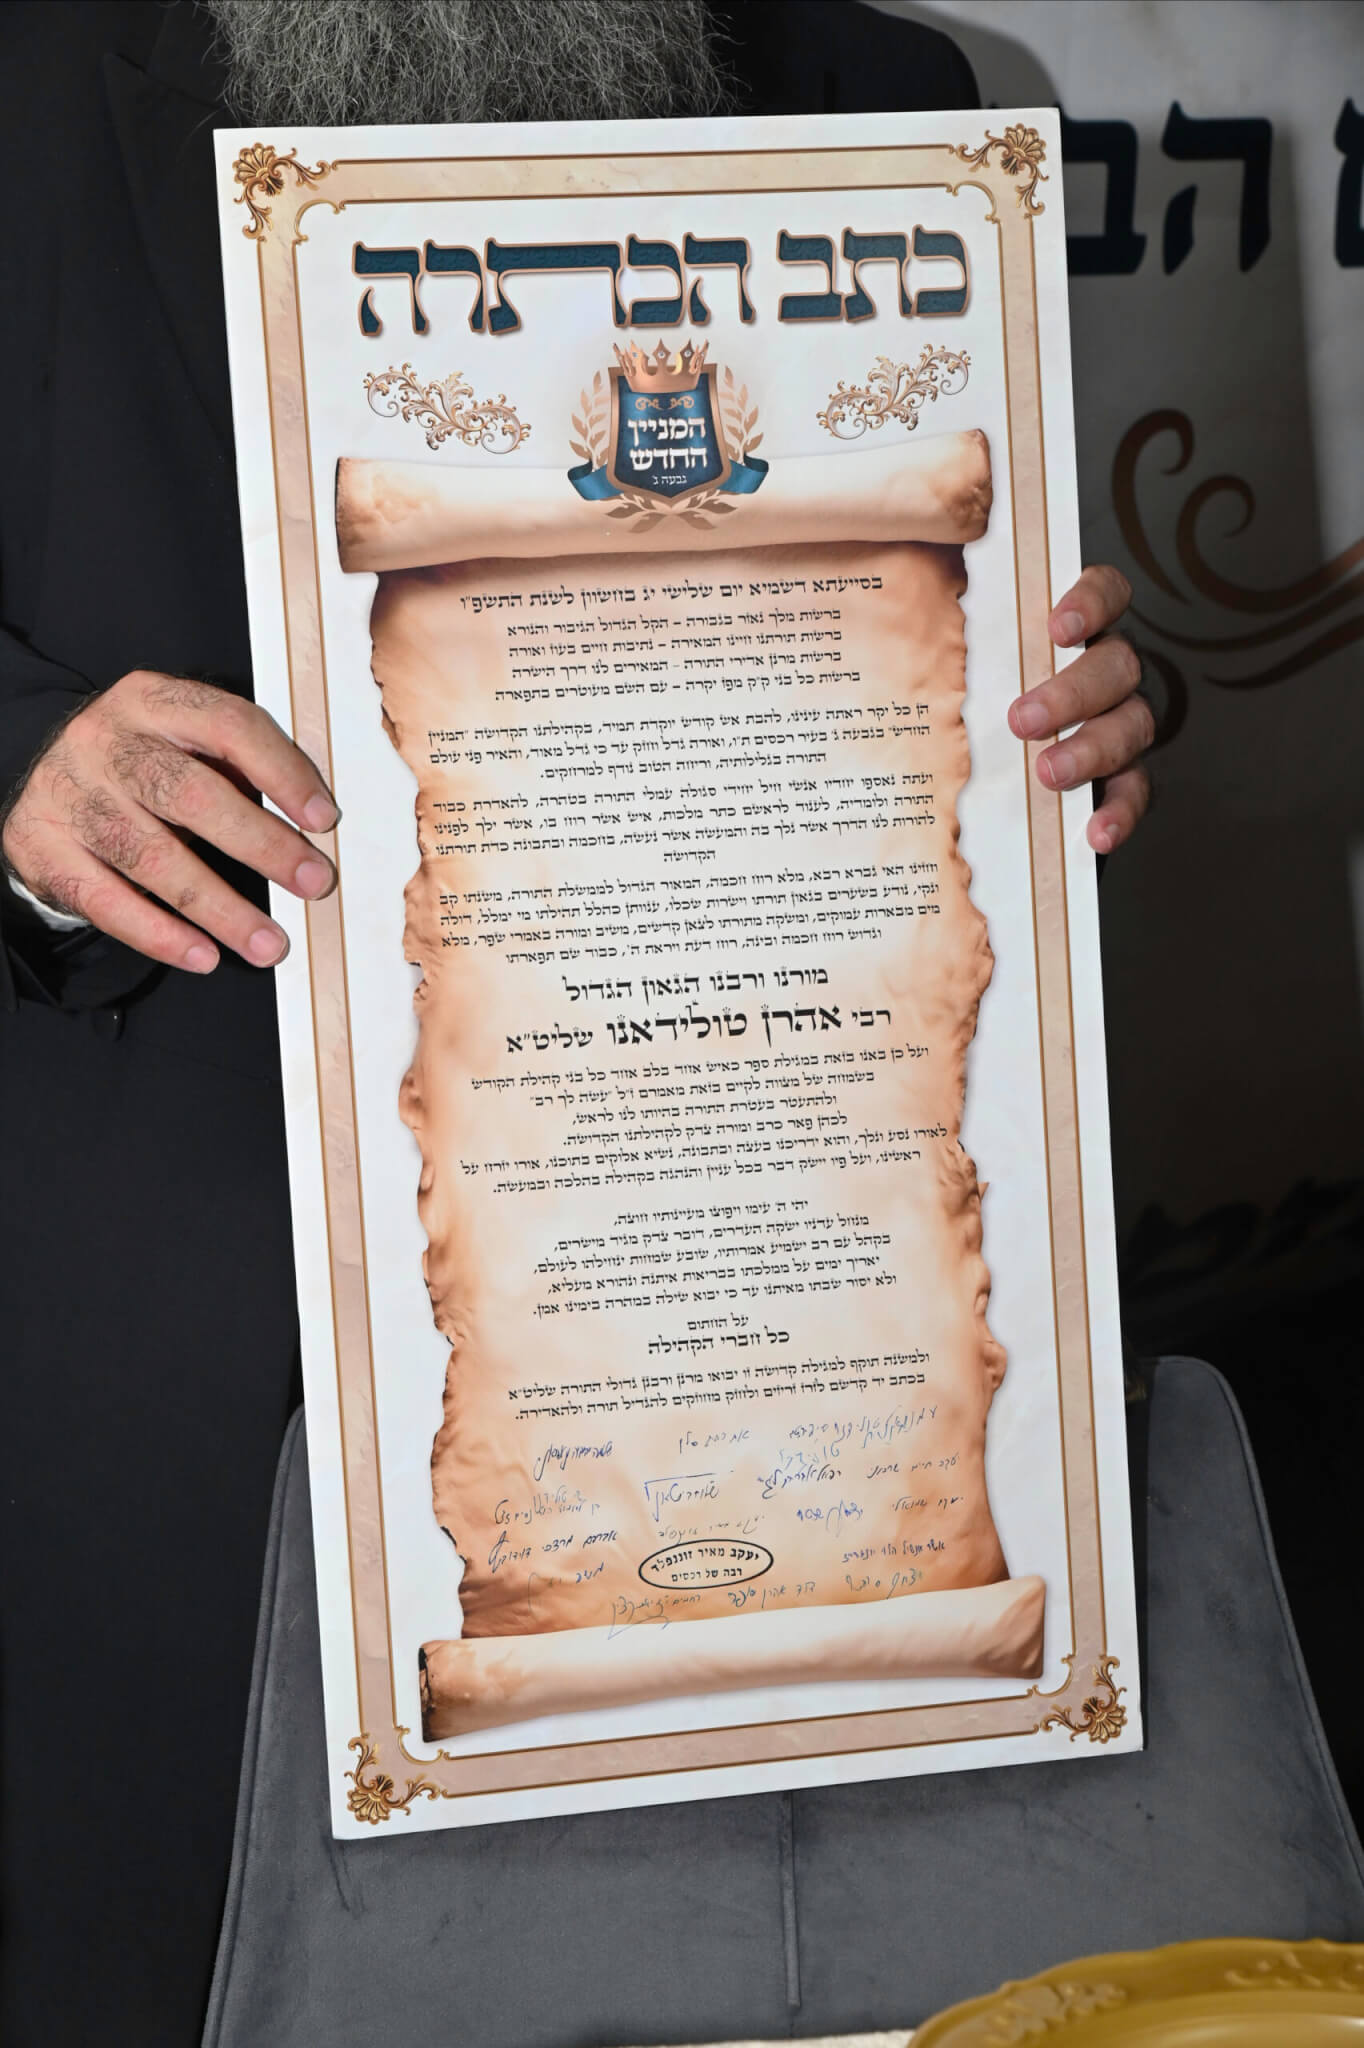 כתב הכתרה
המניין
החדש
גבעה ג'
בסייעתא דשמיא יום שלישי יג בחשוון לשנת התשפ"ו
ברשות מלך נאזר בגבורה – הקל הגדול הגיבור והנורא
ברשות תורתנו חיינו המאירה – נתיבות חיים בעוז ואורה
ברשות מרנן אדירי התורה – המאירים לנו דרך הישרה
ברשות כל בני ק"ק מפז יקרה – עם השם מעוטרים בתפארה
הן כל יקר ראתה עינינו, להבת אש קודש יוקדת תמיד, בקהילתנו הקדושה "המניין
החדש" בגבעה ג' בעיר רכסים ת"ו, ואורה גדל וחזק עד כי גדל מאוד, והאיר פני עולם
התורה בגלילותיה, וריחה הטוב נודף למרחקים.
ועתה נאספו יחדיו אנשי חיל יחידי סגולה עמלי התורה בטהרה, להאדרת כבוד
התורה ולומדיה, לענוד לראשם כתר מלכות, איש אשר רוח בו, אשר ילך לפנינו
להורות לנו הדרך אשר נלך בה והמעשה אשר נעשה, בחכמה ובתבונה כדת תורתנו
הקדושה
וחזינו האי גברא רבא, מלא רוח חכמה, המאור הגדול לממשלת התורה, משנתו קב
ונקי, נודע בשערים בגאון תורתו וישרות שכלו, ענוותן כהלל תהילתו מי ימלל, דולה
מים מבארות עמוקים, ומשקה מתורתו לצאן קדשים, משיב ומורה באמרי שפר, מלא
וגדוש רוח חכמה ובינה, רוח דעת ויראת ה', כבוד שם תפארתו
מורנו ורבנו הגאון הגדול
רבי אהרן טולידאנו שליט"א
ועל כן באנו בזאת במגילת ספר כאיש אחד בלב אחד כל בני קהילת הקודש
בשמחה של מצווה לקיים בזאת מאמרם ז"ל "עשה לך רב"
ולהתעטר בעטרת התורה בהיותו לנו לראש,
לכהן פאר כרב ומורה צדק לקהילתנו הקדושה.
לאורו נסע ונלך, והוא ידריכנו בעצה ובתבונה, נשיא אלוקים בתוכנו, אורו יזרח על
ראשינו, ועל פיו יישק דבר בכל עניין והנהגה בקהילה בהלכה ובמעשה.
יהי ה' עימו ויפוצו מעיינותיו חוצה,
מנחל עדניו ישקה העדרים, דובר צדק מגיד מישרים,
בקהל עם רב ישמיע אמרותיו, שובע שמחות ינחילהו לעולם,
יאריך ימים על ממלכתו בבריאות איתנה ונהורא מעליא,
ולא יסור שבתו מאיתנו עד כי יבוא שילה במהרה בימינו אמן.
על החתום
כל חברי הקהילה
ולמשנה תוקף למגילה קדושה זו יבואו מרנן ורבנן גדולי התורה שליט"א
בכתב יד קדשם לזרז זריזים ולחזק מחוזקים להגדיל תורה ולהאדירה.
יעקב מאיר זוננפלד
רבה של רכסים